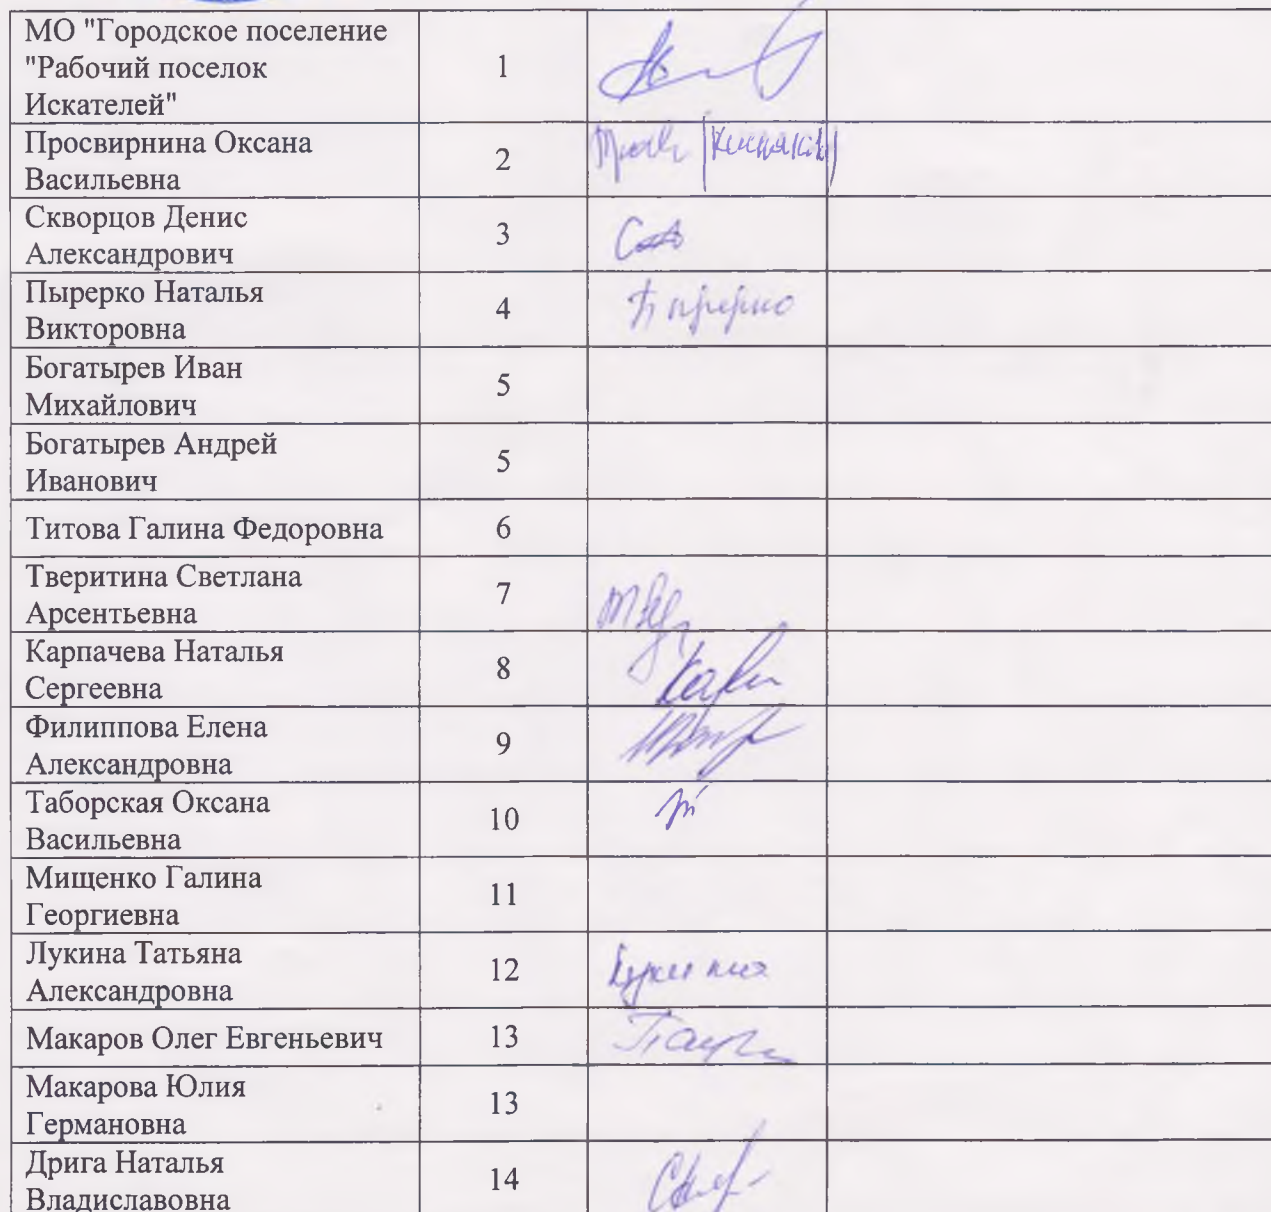 МО "Городское поселение
"Рабочий поселок
Искателей"
1
Просвирнина Оксана
Васильевна
2
Скворцов Денис
Александрович
3
Пырерко Наталья
Викторовна
4
Пырерко
Богатырев Иван
Михайлович
5
Богатырев Андрей
Иванович
5
Титова Галина Федоровна
6
Тверитина Светлана
Арсентьевна
7
Карпачева Наталья
Сергеевна
8
Филиппова Елена
Александровна
9
Таборская Оксана
Васильевна
10
Мищенко Галина
Георгиевна
11
Лукина Татьяна
Александровна
12
Макаров Олег Евгеньевич
13
Макарова Юлия
Германовна
13
Дрига Наталья
Владиславовна
14